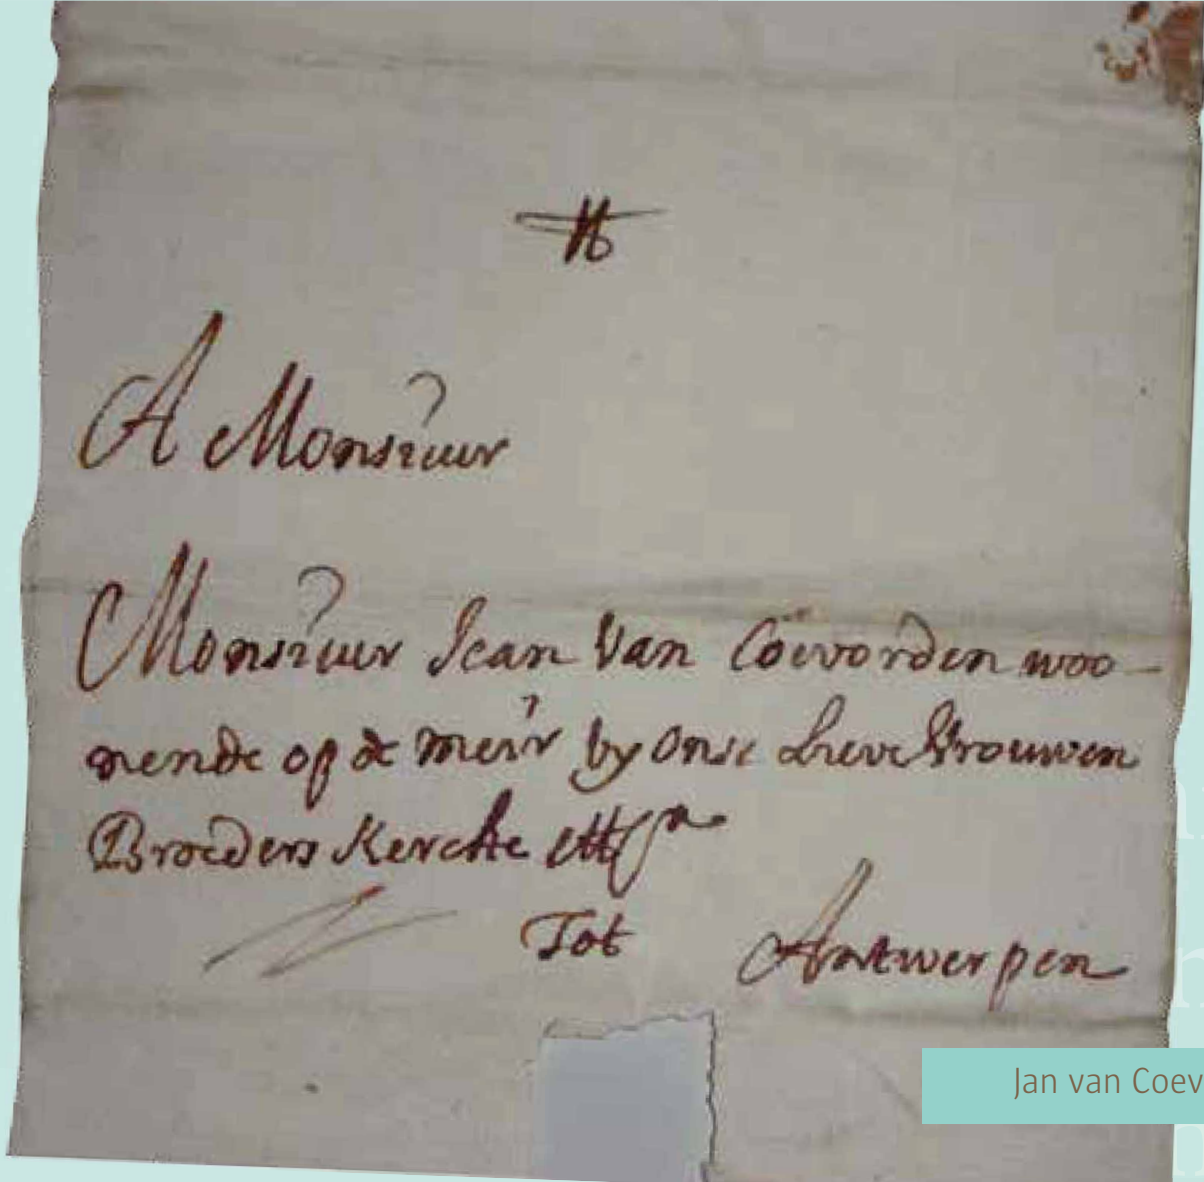 A Monsieur
Monsieur Jean Van Coevorden woo-
nende op de meir by onse Lieve Vrouwen
Broeders Kercke etts
Tot Antwerpen
Jan van Coev